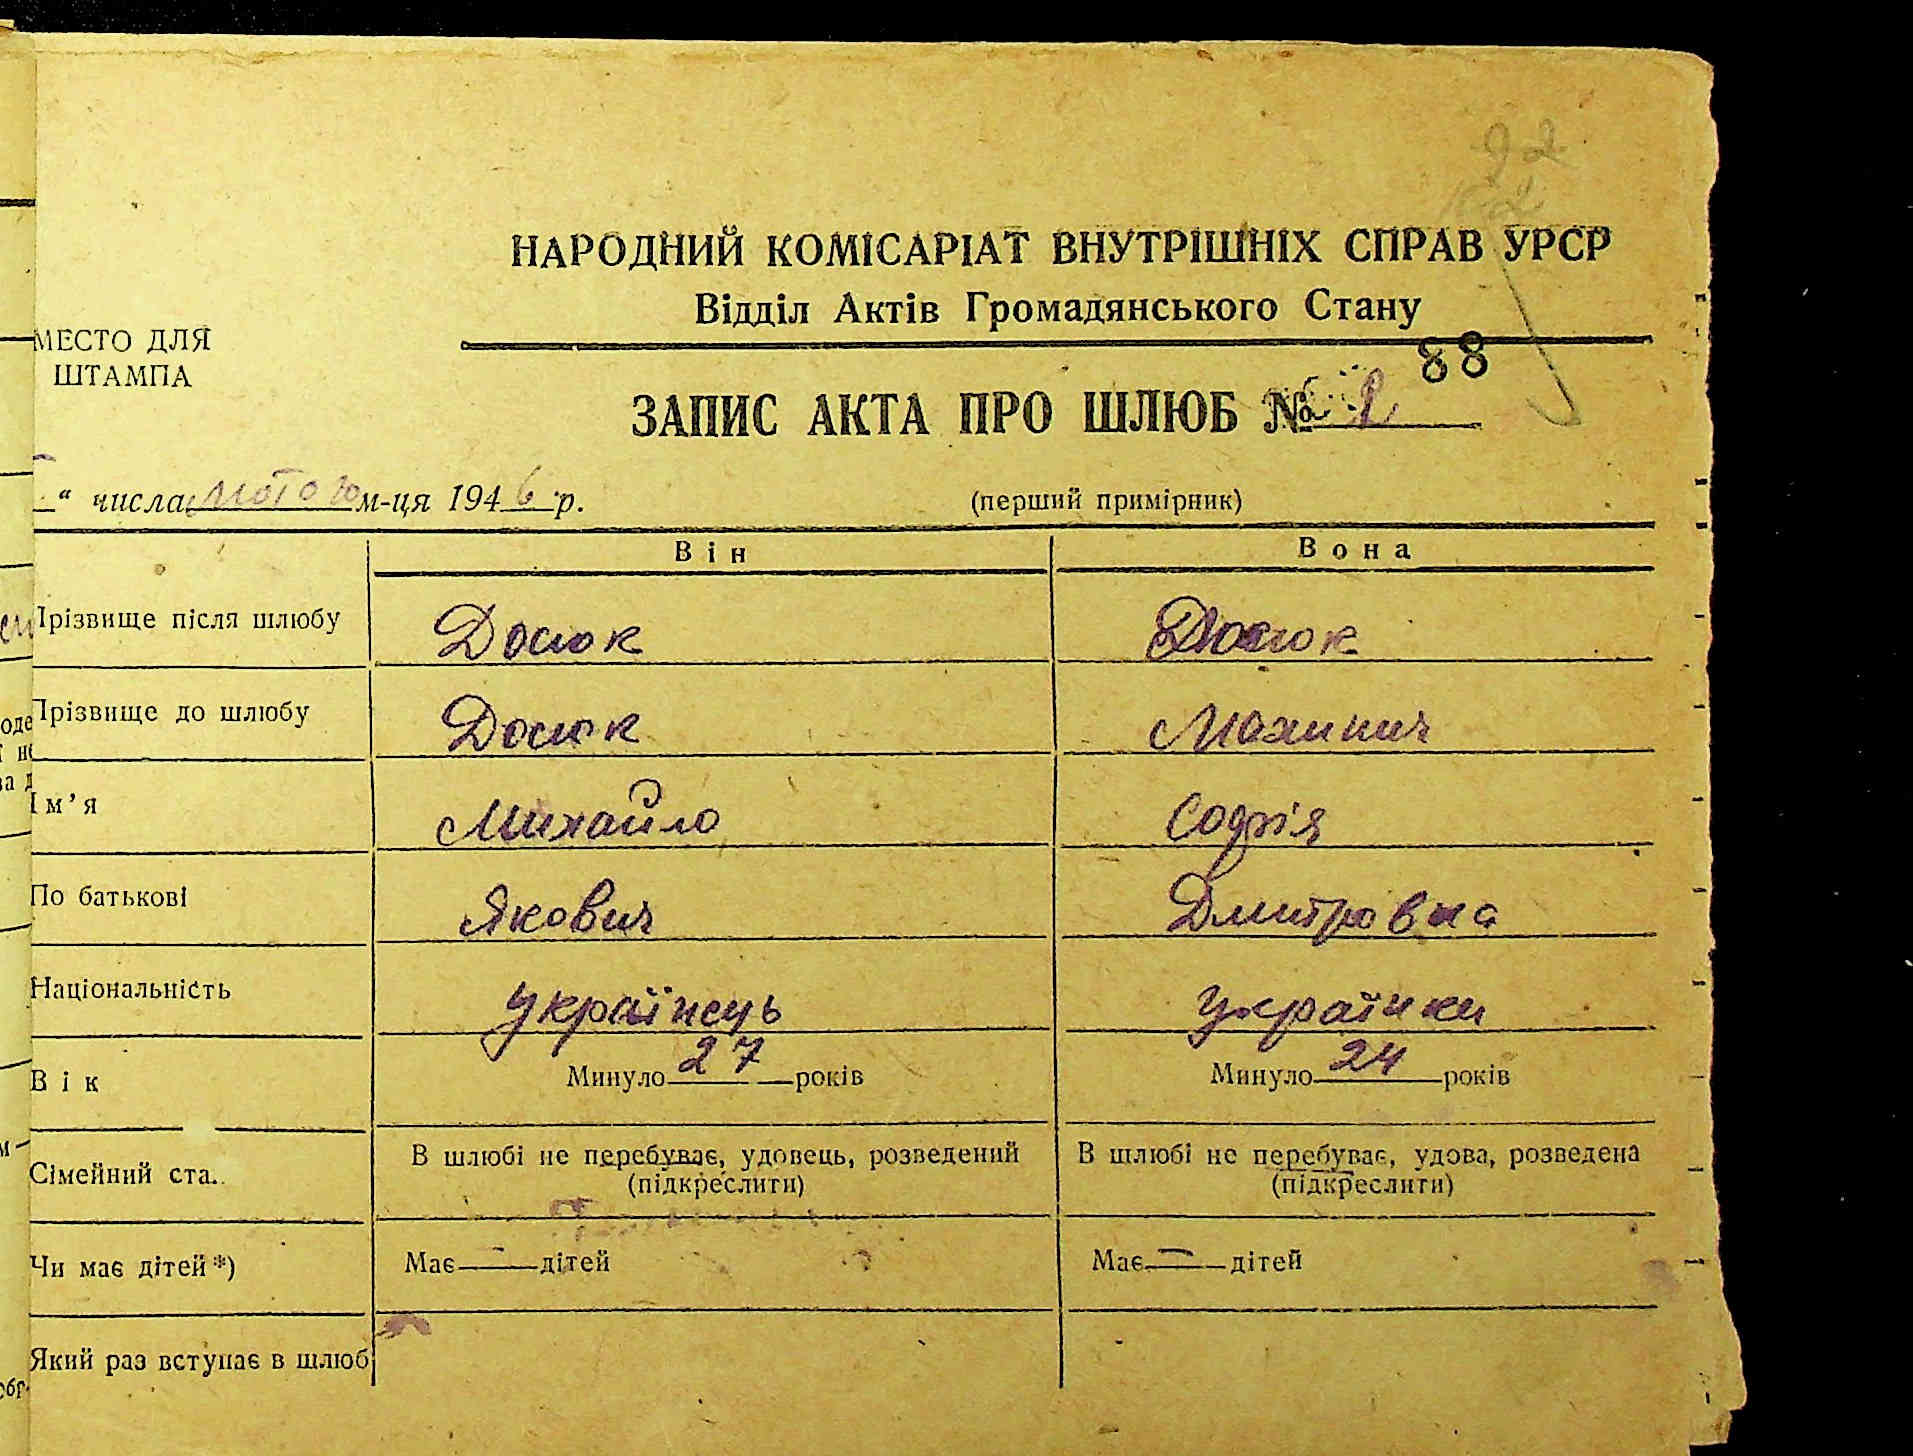 НАРОДНИЙ КОМІСАРІАТ ВНУТРІШНІХ СПРАВ УРСР
Відділ Актів Громадянського Стану
МЕСТО ДЛЯ
ШТАМПА
88
ЗАПИС АКТА ПРО ШЛЮБ № 2
“ числа лютого м-ця 1946 р. (перший примірник)
Він Вона
Прізвище після шлюбу Досюк Досюк
Прізвище до шлюбу Досюк
Ім’я Михайло Софія
По батькові Якович Дмитровна
Національність Українець Українки
Вік Минуло 27 років Минуло 24 років
Сімейний ста.. В шлюбі не перебуває, удовець, розведений В шлюбі не перебуває, удова, розведена
(підкреслити) (підкреслити)
Чи має дітей*) Має — дітей Має — дітей
Який раз вступає в шлюб